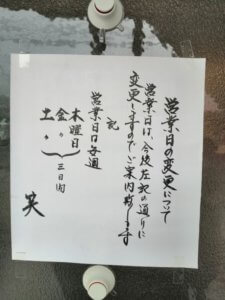 営業日の変更について
営業日は、今後左記の通りに
変更しますのでご案内致します
記
営業日日毎週
木曜日
金〃
土〃
三日間
笑